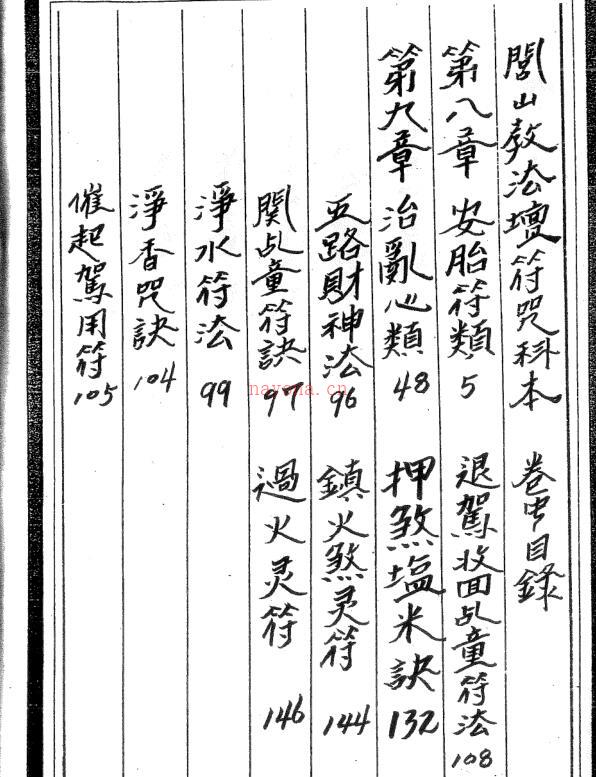 閭山教法壇符咒科本 卷中目錄
第八章 安胎符類 5
第九章 治亂心類 48
五路財神法 96
関乩童符訣 97
淨水符法 99
淨香咒訣 104
催起駕用符 105
退駕收回乩童符法 108
押煞塩米訣 132
鎮火煞灵符 144
過火灵符 146
nayona.cn